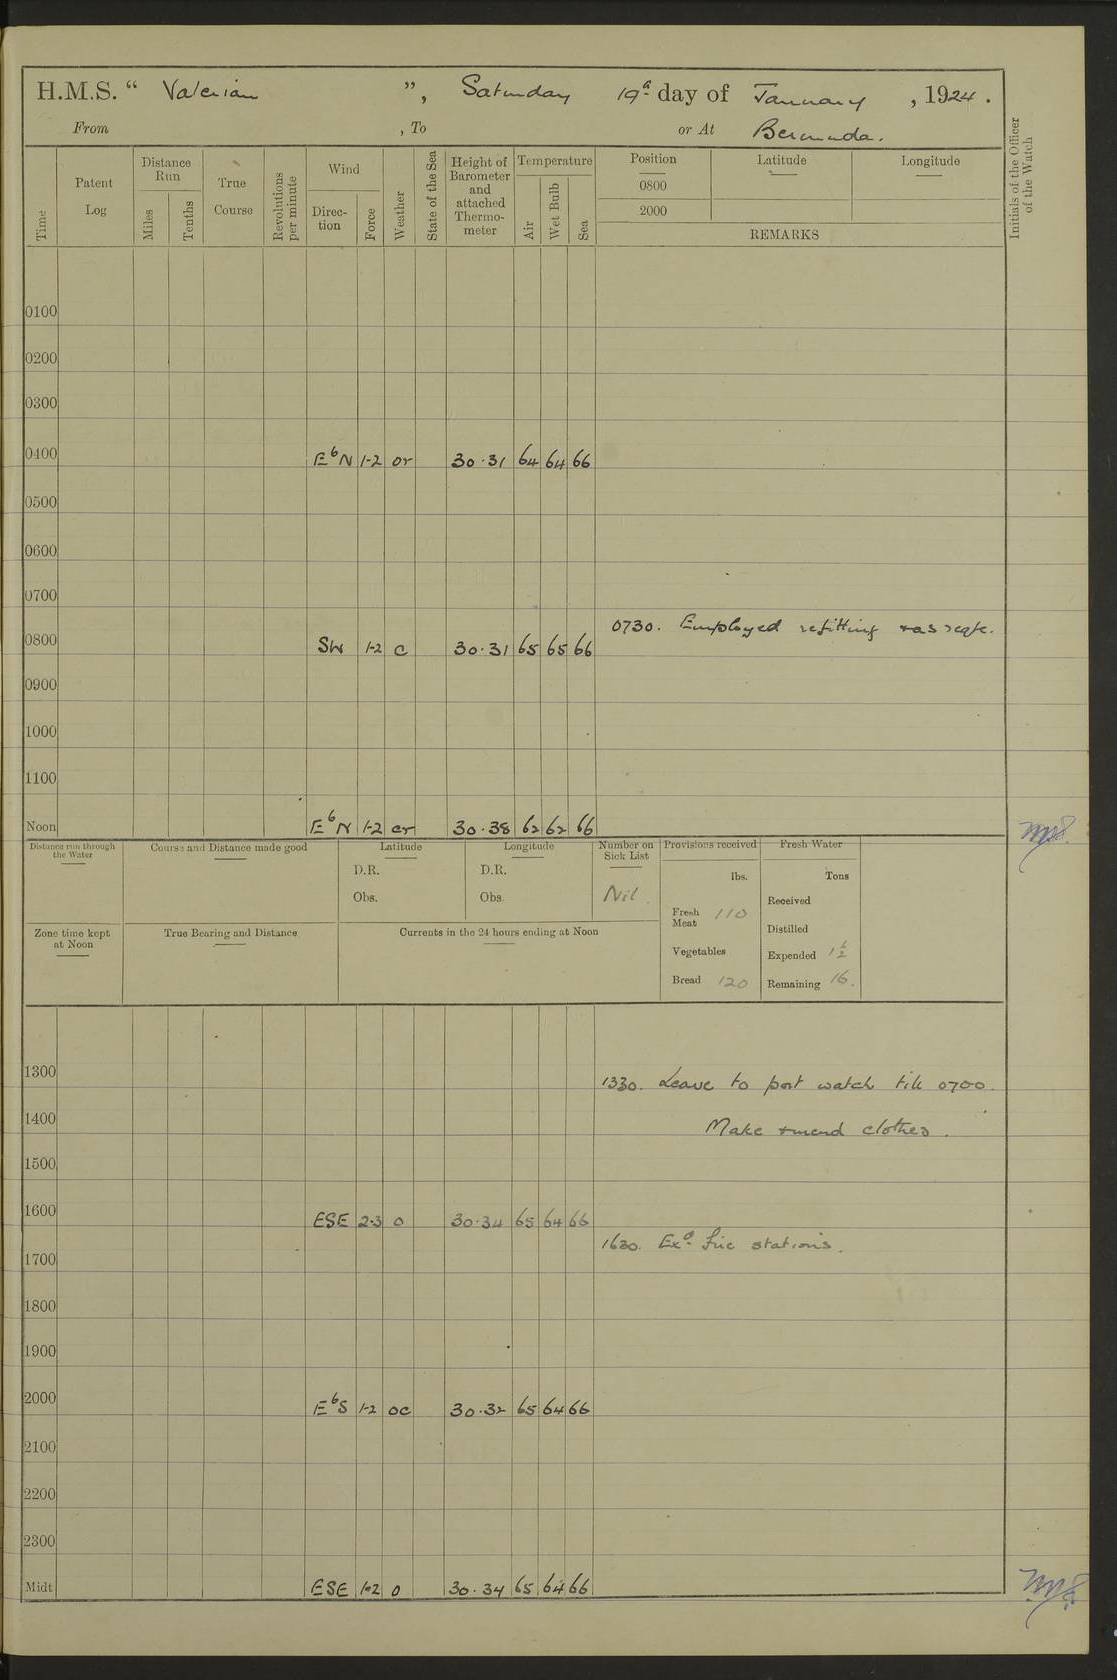 H.M.S. “ Valerian ”, Saturday 19th day of January , 1924 .
From , To or At Bermuda.
Time
Patent Log
Distance Run
Miles
Tenths
True Course
Revolutions per minute
Wind
Direc-tion
Force
Weather
State of the Sea
Height of Barometer and attached Thermo-meter
Temperature
Air
Wet Bulb
Sea
Position Latitude Longitude
0800
2000
REMARKS
Initials of the Officer of the Watch
0100
0200
0300
0400 E b N 1-2 or 30.31 64 64 66
0500
0600
0700
0730. Employed refitting
0800 SW 1-2 c 30.31 65 65 66
0900
1000
1100
Noon E b N 1-2 cr 30.38 62 62 66
Distance run through the Water
Course and Distance made good
Latitude
D.R.
Obs.
Longitude
D.R.
Obs.
Number on Sick List
Nil.
Provisions received
lbs.
Fresh Meat 110
Vegetables
Bread 120
Fresh Water
Tons
Received
Distilled
Expended 1½
Remaining 16.
Zone time kept at Noon
True Bearing and Distance
Currents in the 24 hours ending at Noon
1300
1330. Leave to port watch till 0700.
1400 Make + mend clothes.
1500
1600 ESE 2-3 o 30.34 65 64 66
1630. Exd fire stations.
1700
1800
1900
2000 E b S 1-2 oc 30.32 65 64 66
2100
2200
2300
Midt. ESE 1-2 o 30.34 65 64 66